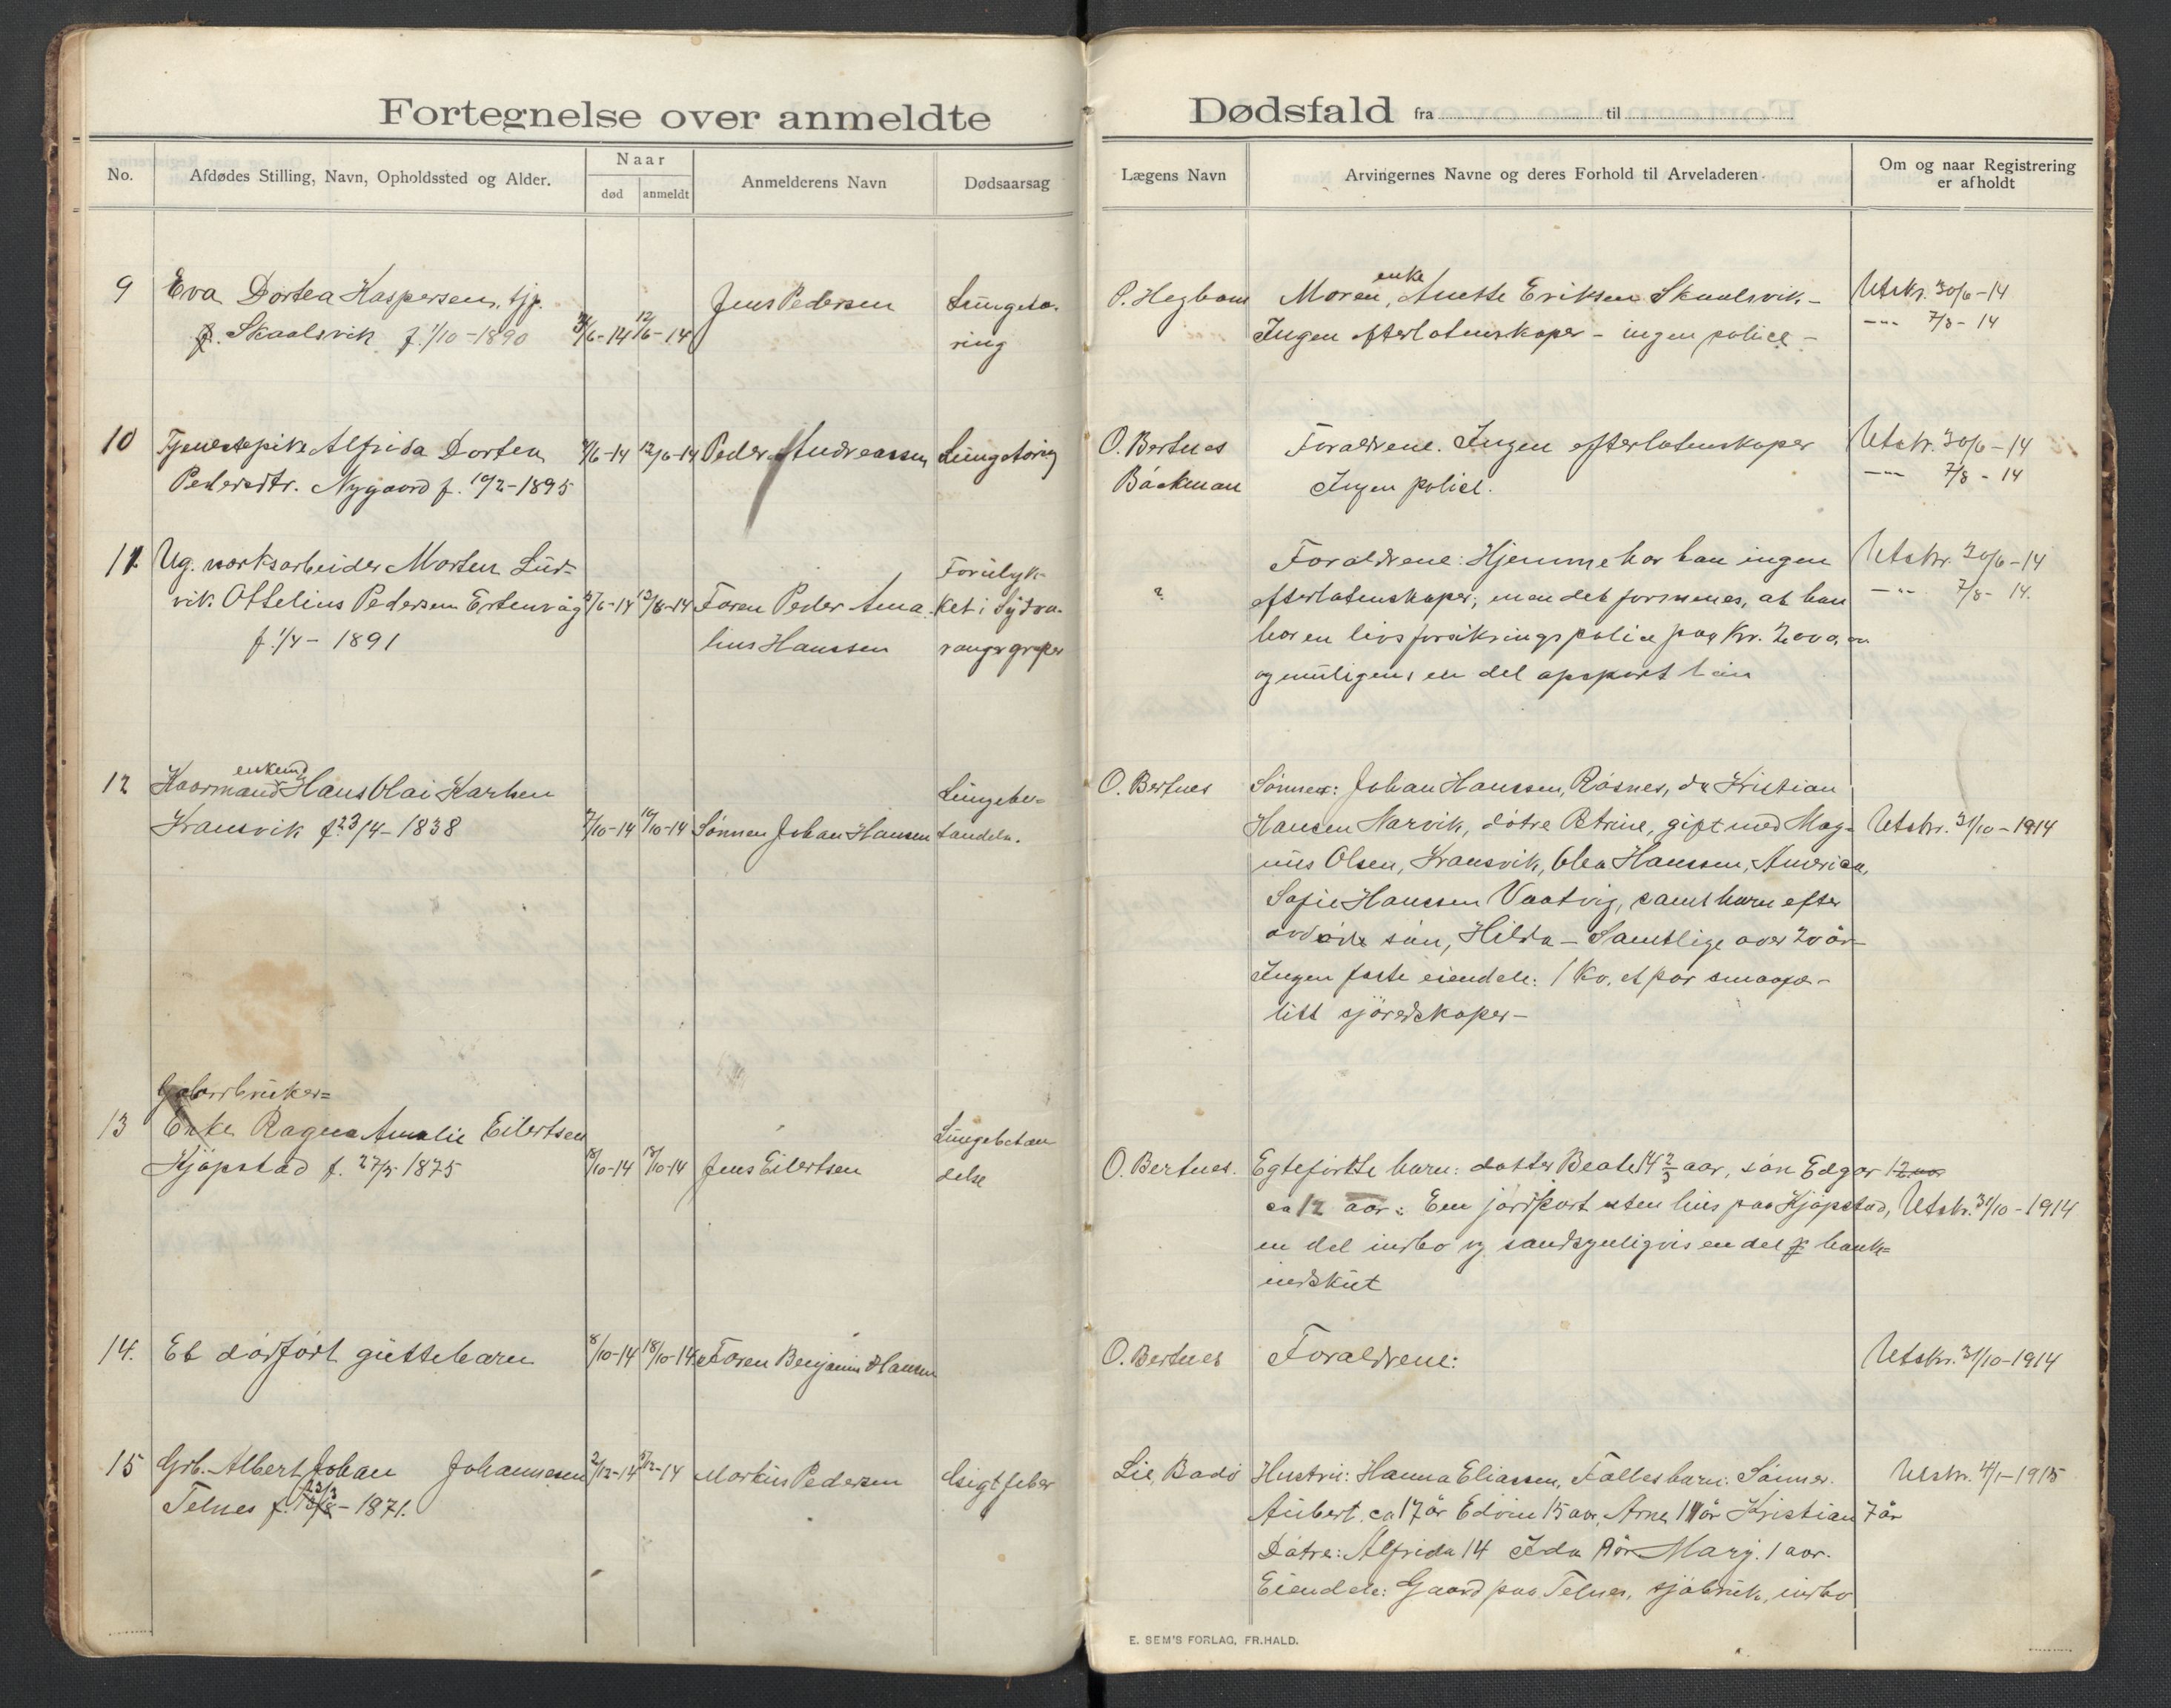 Fortegnelse over anmeldte
No.
Afdødes Stilling, Navn, Opholdssted og Alder.
Naar
død
anmeldt
Anmelderens Navn
Dødsaarsag
9
Eva Dortea Kaspersen, tjp.
Skaalsvik f. 1/10-1890
/6-14
12/6-14
Jens Pedersen
Lungetæ.
ring
10
Tjenestepike Alfrida Dortea
Pedersdtr. Nygaard f. 10/2-1895
/6-14
12/6-14
Peder Andreassen
Lungetæring
11.
Ug. verksarbeider Morten Lud-
vik Ottelius Pedersen Ertenvåg
f. 1/4 - 1891
/6-14
Faren Peder Ama
lius Hanssen
Forulyk-
ket i Sydva-
ranger gruper
12
enkemd
Kaarmand Hans Olai Karlsen
Kransvik f. 23/4-1838
7/10-14
/10-14
Sønnen Johan Hansen
Lungebe-
tændels.
13
Gabrrbruker=
Enke Ragna Amalie Eilertsen
Kjøpstad f. 27/5 1875
/10-14
/10-14
Jens Eilertsen
Lungebetæn
delse
14.
Et dødfødt guttebarn
8/10-14
18/10-14
Faren Benjamin Hansen
15
Grb. Albert Johan Johannesen
23/3
Telnes f. 18/8 - 1871.
2/12-14
/12-14
Markus Pedersen
Gigtfeber
Dødsfald fra til
Lægens Navn
Arvingernes Navne og deres Forhold til Arveladeren.
Om og naar Registrering
er afholdt
P. Hegbom
enke
Moren, Anette Eriksen Skaalsvik -
Ingen efterlatenskaper - ingen police -
Utskr. 30/6-14
--- 7/8-14
O. Bertnes
Bäckman
Forældrene. Ingen efterlatenskaper
Ingen police.
Utskr. 30/6-14
--- 7/8-14
?
Forældrene: Hjemme har han ingen
efterlatenskaper, men det formenes, at han
har en livsforsikringspolice paa Kr. 2000,00
og muligens en del opspart løn
Utskr. 30/6-14
--- 7/8-14.
O. Bertnes
Sønner: Johan Hanssen, Røsnes, do Kristian
Hansen Narvik, døtre Petrine, gift med Mag-
nus Olsen, Kransvik, Olea Hanssen, America,
Sofie Hanssen Vaatvig, samt barn efter
avdøde søn, Hilda - Samtlige over 20 år -
Ingen faste eiendele: 1 ko, et par smaafæ -
litt sjøredskaper -
Utskr. 31/10-1914
O. Bertnes.
Egtefødte barn: datter Beate 14 2/3 aar, søn Edgar 12 aar
ca 12 aar: Een jordpart uten hus paa Kjøpstad,
en del indbo og sandsynligvis en del bank=
indskut
Utskr. 31/10-1914
O. Bertnes
Forældrene:
Utskr. 31/10-1914
Lie, Bodø
Hustru: Hanna Eliassen, Fællesbarn: Sønner.
Aubert. ca 17 år Edvin 15 aar, Arne 11 år Kristian 7 år
Døtre: Alfrida 14 Ida 9 år Mary. 1 aar.
Eiendele: Gaard paa Telnes, sjøbruk, indbo
Utskr. 4/1-1915
E. SEM'S FORLAG, FR.HALD.